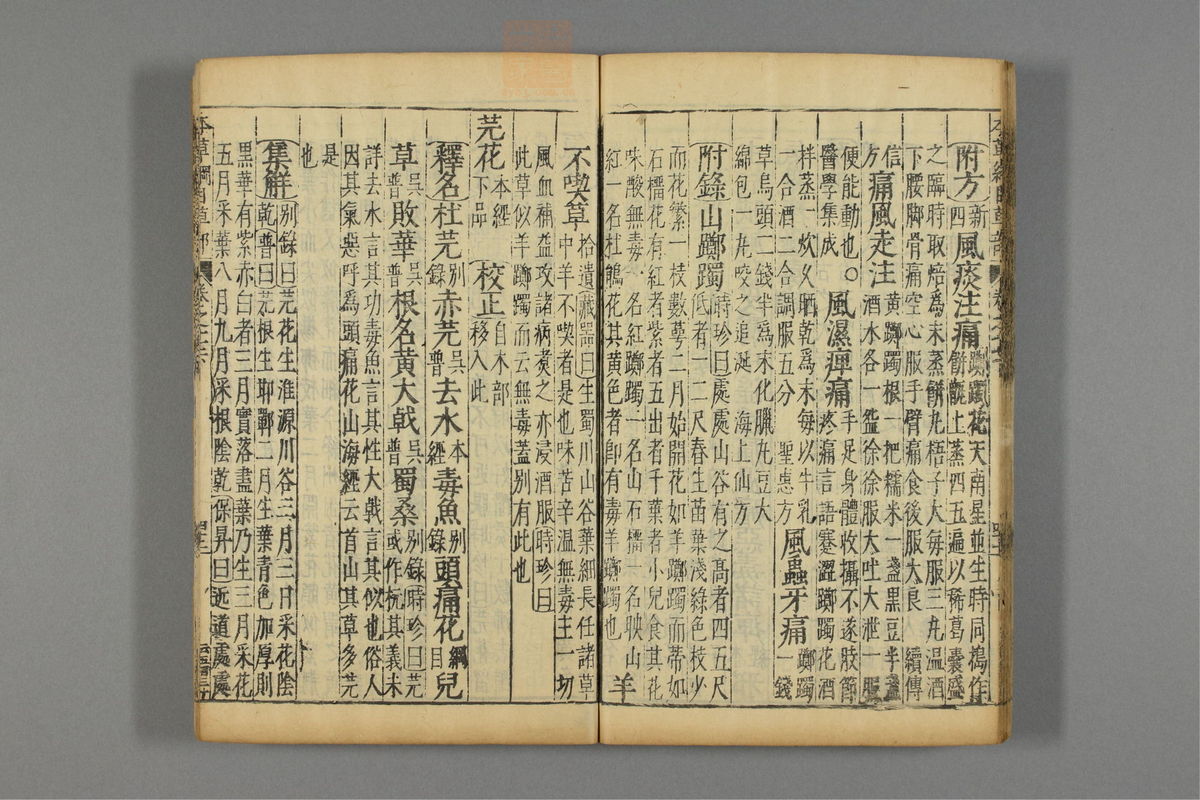 附方 新四 風痰注痛 躑躅花天南星並生時同搗作
餅甑上蒸四五遍以稀葛囊盛
之臨時取焙為末蒸餅丸梧子大每服三丸溫酒
下腰脚骨痛空心服手臂痛食後服大良 續傳
信方 痛風走注 黃躑躅根一把糯米一盞黑豆半盞
酒水各一盌徐徐服大吐大泄一服
便能動也。
醫學集成
風濕痺痛 手足身體收攝不遂肢節
疼痛言語蹇澀躑躅花酒
拌蒸一炊久晒乾爲末每以牛乳
一合酒二合調服五分 聖惠方
風蟲牙痛 躑躅一錢
草烏頭二錢半爲末化臘丸豆大
綿包一丸咬之追涎 海上仙方
附錄 山躑躅 時珍曰處處山谷有之高者四五尺
低者一二尺春生苗葉淺綠色枝少
而花繁一枝數萼二月始開花如羊躑躅而蒂如
石榴花有紅者紫者五出者千葉者小兒食其花
味酸無毒一名紅躑躅一名山石榴一名映山
紅一名杜鵑花其黃色者卽有毒羊躑躅也 羊
不喫草 拾遺 藏器曰生蜀川山谷葉細長任諸草
中羊不喫者是也味苦辛溫無毒主一切
風血補益攻諸病煑之亦浸酒服時珍曰
此草似羊躑躅而云無毒蓋別有此也
芫花 本經下品 校正 自木部移入此
釋名 杜芫 別錄 赤芫 吳普 去水 本經 毒魚 別錄 頭痛花 綱目 兒
草 吳普 敗華 吳普 根名黃大戟 吳普 蜀桑 別錄時珍曰芫
或作杬其義未
詳去水言其功毒魚言其性大戟言其似也俗人
因其氣惡呼爲頭痛花山海經云首山其草多芫
是
也
集解 別錄曰芫花生淮源川谷三月三日采花陰
乾普曰芫根生邯鄲二月生葉青色加厚則
黑華有紫赤白者三月實落盡葉乃生三月采花
五月采葉八月九月采根陰乾保昇曰近道處處